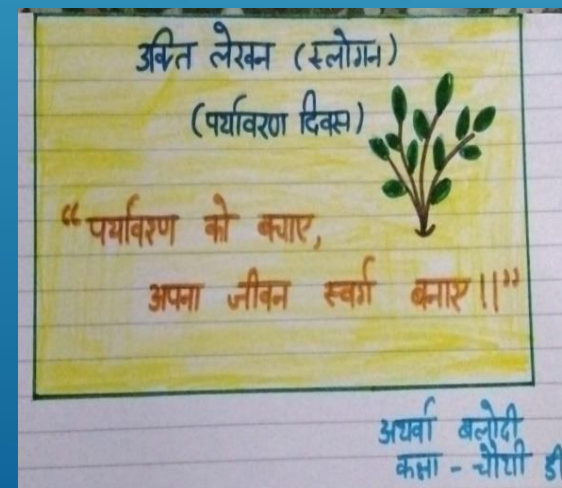 उक्ति लेखन (स्लोगन)
(पर्यावरण दिवस)
“पर्यावरण को बचाए,
अपना जीवन स्वर्ग बनाए।।”
अथर्वा बलोदी
कक्षा - चौथी डी